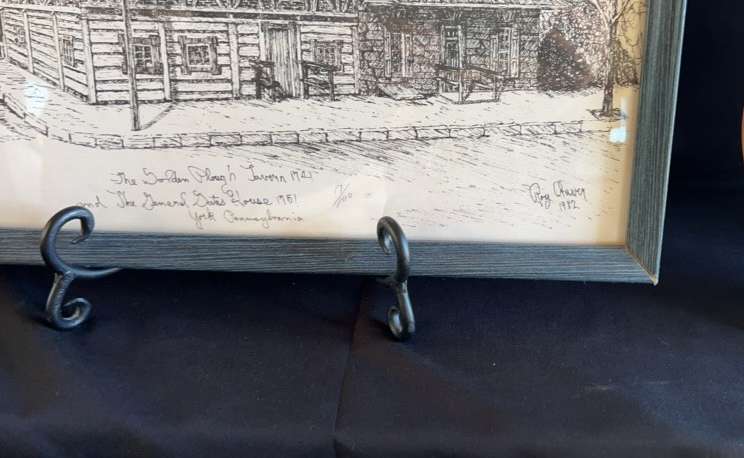 The Golden Plough Tavern 1741
and The General Gates House 1751
York Pennsylvania
/100
Roy
1982